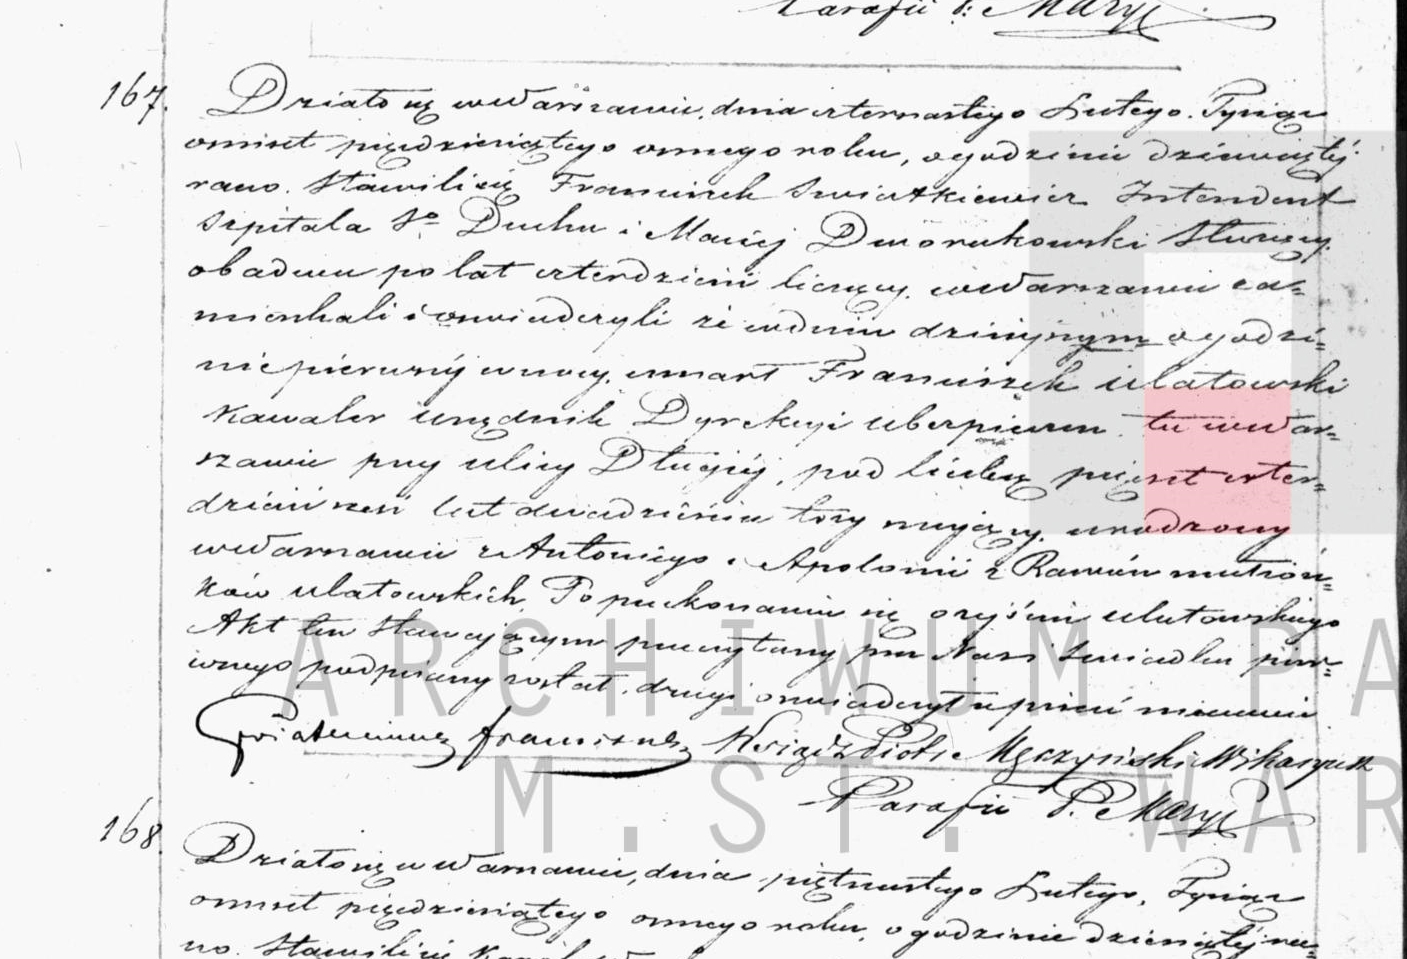 Parafii P. Maryi
167. Działo się w Warszawie, dnia czternastego Lutego. Tysiąc
ośmset pięćdziesiątego osmego roku, o godzinie dziewiątéj
rano. Stawili się Franciszek Swiątkiewicz Intendent
Szpitala So Ducha i Maciéj Dworakowski Służący
obadwa po lat czterdzieści liczący, w Warszawie za=
mieszkali i oswiadczyli że w dniu dzisiejszym o godzi=
nie pierwszéj w nocy, umarł Franciszek Ulatowski
Kawaler Urzędnik Dyrekcyi Ubezpieczeń tu w War=
szawie przy ulicy Długiéj, pod liczbą pięćset czter=
dzieści sześć lat dwadzieścia trzy mający, urodzony
w Warszawie z Antoniego i Apolonii z małżon=
ków Ulatowskich. Po przekonaniu się o zejściu Ulatowskiego
Akt ten Stawającym przeczytany przez Nas i Swiadka pier=
wszego podpisany został, drugi oswiadczył iż pisać nieumie
Swiątkiewicz Franciszek Ksiądz Piotr Męczyński Wikaryusz
Parafii P. Maryi
168. Działo się w Warszawie, dnia piętnastego Lutego, Tysiąc
ośmset pięćdziesiątego osmego roku, o godzinie dziesiątéj ra=
no. Stawili się
ARCHIWUM PA
M.ST. WAR